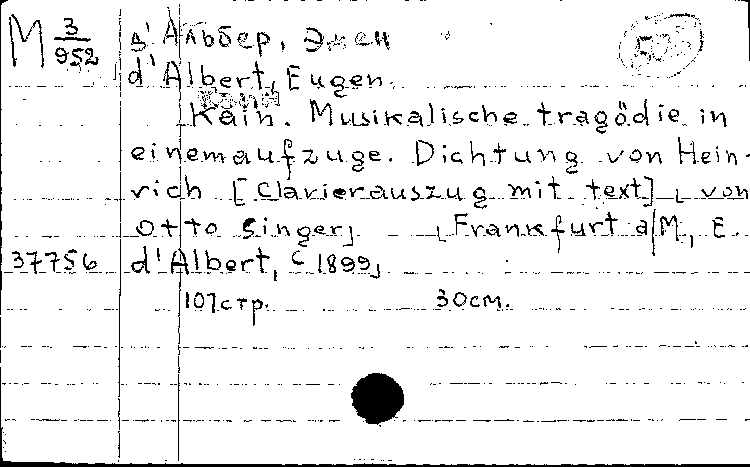 М 3/952 д'Альбер, Эжен
d'Albert, Eugen.
Kain. Musikalische tragödie in
einem aufzuge. Dichtung von Hein-
rich [Clavierauszug mit text] von
Otto Singer Frankfurt a/M, E.
37756 d'Albert, c 1899
107 стр. 30 см.